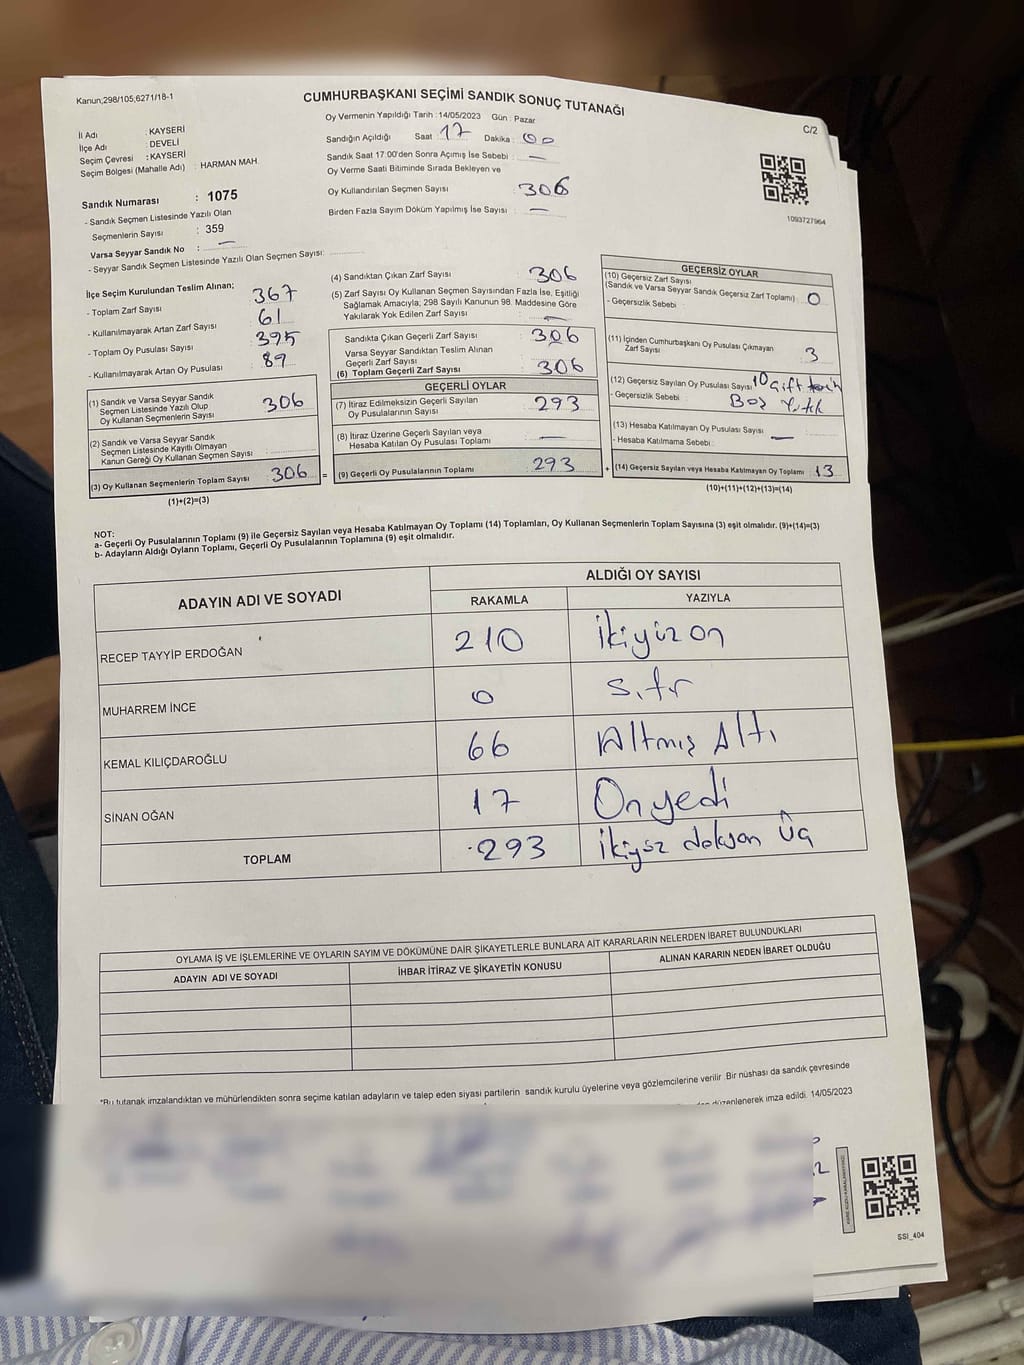 Kanun;298/105,6271/18-1
CUMHURBAŞKANI SEÇİMİ SANDIK SONUÇ TUTANAĞI
C/2
Oy Vermenin Yapıldığı Tarih :14/05/2023 Gün : Pazar
İl Adı : KAYSERİ
İlçe Adı : DEVELİ
Seçim Çevresi : KAYSERİ
Seçim Bölgesi (Mahalle Adı) : HARMAN MAH.
Sandık Numarası : 1075
- Sandık Seçmen Listesinde Yazılı Olan
Seçmenlerin Sayısı : 359
Varsa Seyyar Sandık No : —
- Seyyar Sandık Seçmen Listesinde Yazılı Olan Seçmen Sayısı:
Sandığın Açıldığı Saat 17 Dakika : 00
Sandık Saat 17:00'den Sonra Açımış İse Sebebi : —
Oy Verme Saati Bitiminde Sırada Bekleyen ve
Oy Kullandırılan Seçmen Sayısı : 306
Birden Fazla Sayım Döküm Yapılmış İse Sayısı : —
1093727964
İlçe Seçim Kurulundan Teslim Alınan;
- Toplam Zarf Sayısı 367
- Kullanılmayarak Artan Zarf Sayısı 61
- Toplam Oy Pusulası Sayısı 395
- Kullanılmayarak Artan Oy Pusulası 89
(1) Sandık ve Varsa Seyyar Sandık
Seçmen Listesinde Yazılı Olup
Oy Kullanan Seçmenlerin Sayısı 306
(2) Sandık ve Varsa Seyyar Sandık
Seçmen Listesinde Kayıtlı Olmayan
Kanun Gereği Oy Kullanan Seçmen Sayısı :
(3) Oy Kullanan Seçmenlerin Toplam Sayısı 306 =
(1)+(2)=(3)
(4) Sandıktan Çıkan Zarf Sayısı 306
(5) Zarf Sayısı Oy Kullanan Seçmen Sayısından Fazla İse, Eşitliği
Sağlamak Amacıyla; 298 Sayılı Kanunun 98. Maddesine Göre
Yakılarak Yok Edilen Zarf Sayısı : —
Sandıkta Çıkan Geçerli Zarf Sayısı 306
Varsa Seyyar Sandıktan Teslim Alınan
Geçerli Zarf Sayısı
(6) Toplam Geçerli Zarf Sayısı 306
GEÇERLİ OYLAR
(7) İtiraz Edilmeksizin Geçerli Sayılan
Oy Pusulalarının Sayısı : 293
(8) İtiraz Üzerine Geçerli Sayılan veya
Hesaba Katılan Oy Pusulası Toplamı —
(9) Geçerli Oy Pusulalarının Toplamı 293 +
GEÇERSİZ OYLAR
(10) Geçersiz Zarf Sayısı
(Sandık ve Varsa Seyyar Sandık Geçersiz Zarf Toplamı) : 0
- Geçersizlik Sebebi :
(11) İçinden Cumhurbaşkanı Oy Pusulası Çıkmayan
Zarf Sayısı 3
(12) Geçersiz Sayılan Oy Pusulası Sayısı : 10 Çift tercih
- Geçersizlik Sebebi : Boş
(13) Hesaba Katılmayan Oy Pusulası Sayısı :
- Hesaba Katılmama Sebebi : —
(14) Geçersiz Sayılan veya Hesaba Katılmayan Oy Toplamı : 13
(10)+(11)+(12)+(13)=(14)
NOT:
a- Geçerli Oy Pusulalarının Toplamı (9) ile Geçersiz Sayılan veya Hesaba Katılmayan Oy Toplamı (14) Toplamları, Oy Kullanan Seçmenlerin Toplam Sayısına (3) eşit olmalıdır. (9)+(14)=(3)
b- Adayların Aldığı Oyların Toplamı, Geçerli Oy Pusulalarının Toplamına (9) eşit olmalıdır.
ADAYIN ADI VE SOYADI ALDIĞI OY SAYISI
RAKAMLA YAZIYLA
RECEP TAYYİP ERDOĞAN 210 ikiyüz on
MUHARREM İNCE 0 sıfır
KEMAL KILIÇDAROĞLU 66 Altmış Altı
SİNAN OĞAN 17 On yedi
TOPLAM 293 ikiyüz doksan üç
OYLAMA İŞ VE İŞLEMLERİNE VE OYLARIN SAYIM VE DÖKÜMÜNE DAİR ŞİKAYETLERLE BUNLARA AİT KARARLARIN NELERDEN İBARET BULUNDUKLARI
ADAYIN ADI VE SOYADI İHBAR İTİRAZ VE ŞİKAYETİN KONUSU ALINAN KARARIN NEDEN İBARET OLDUĞU
*Bu tutanak imzalandıktan ve mühürlendikten sonra seçime katılan adayların ve talep eden siyasi partilerin sandık kurulu üyelerine veya gözlemcilerine verilir. Bir nüshası da sandık çevresinde
düzenlenerek imza edildi. 14/05/2023
SSI_404